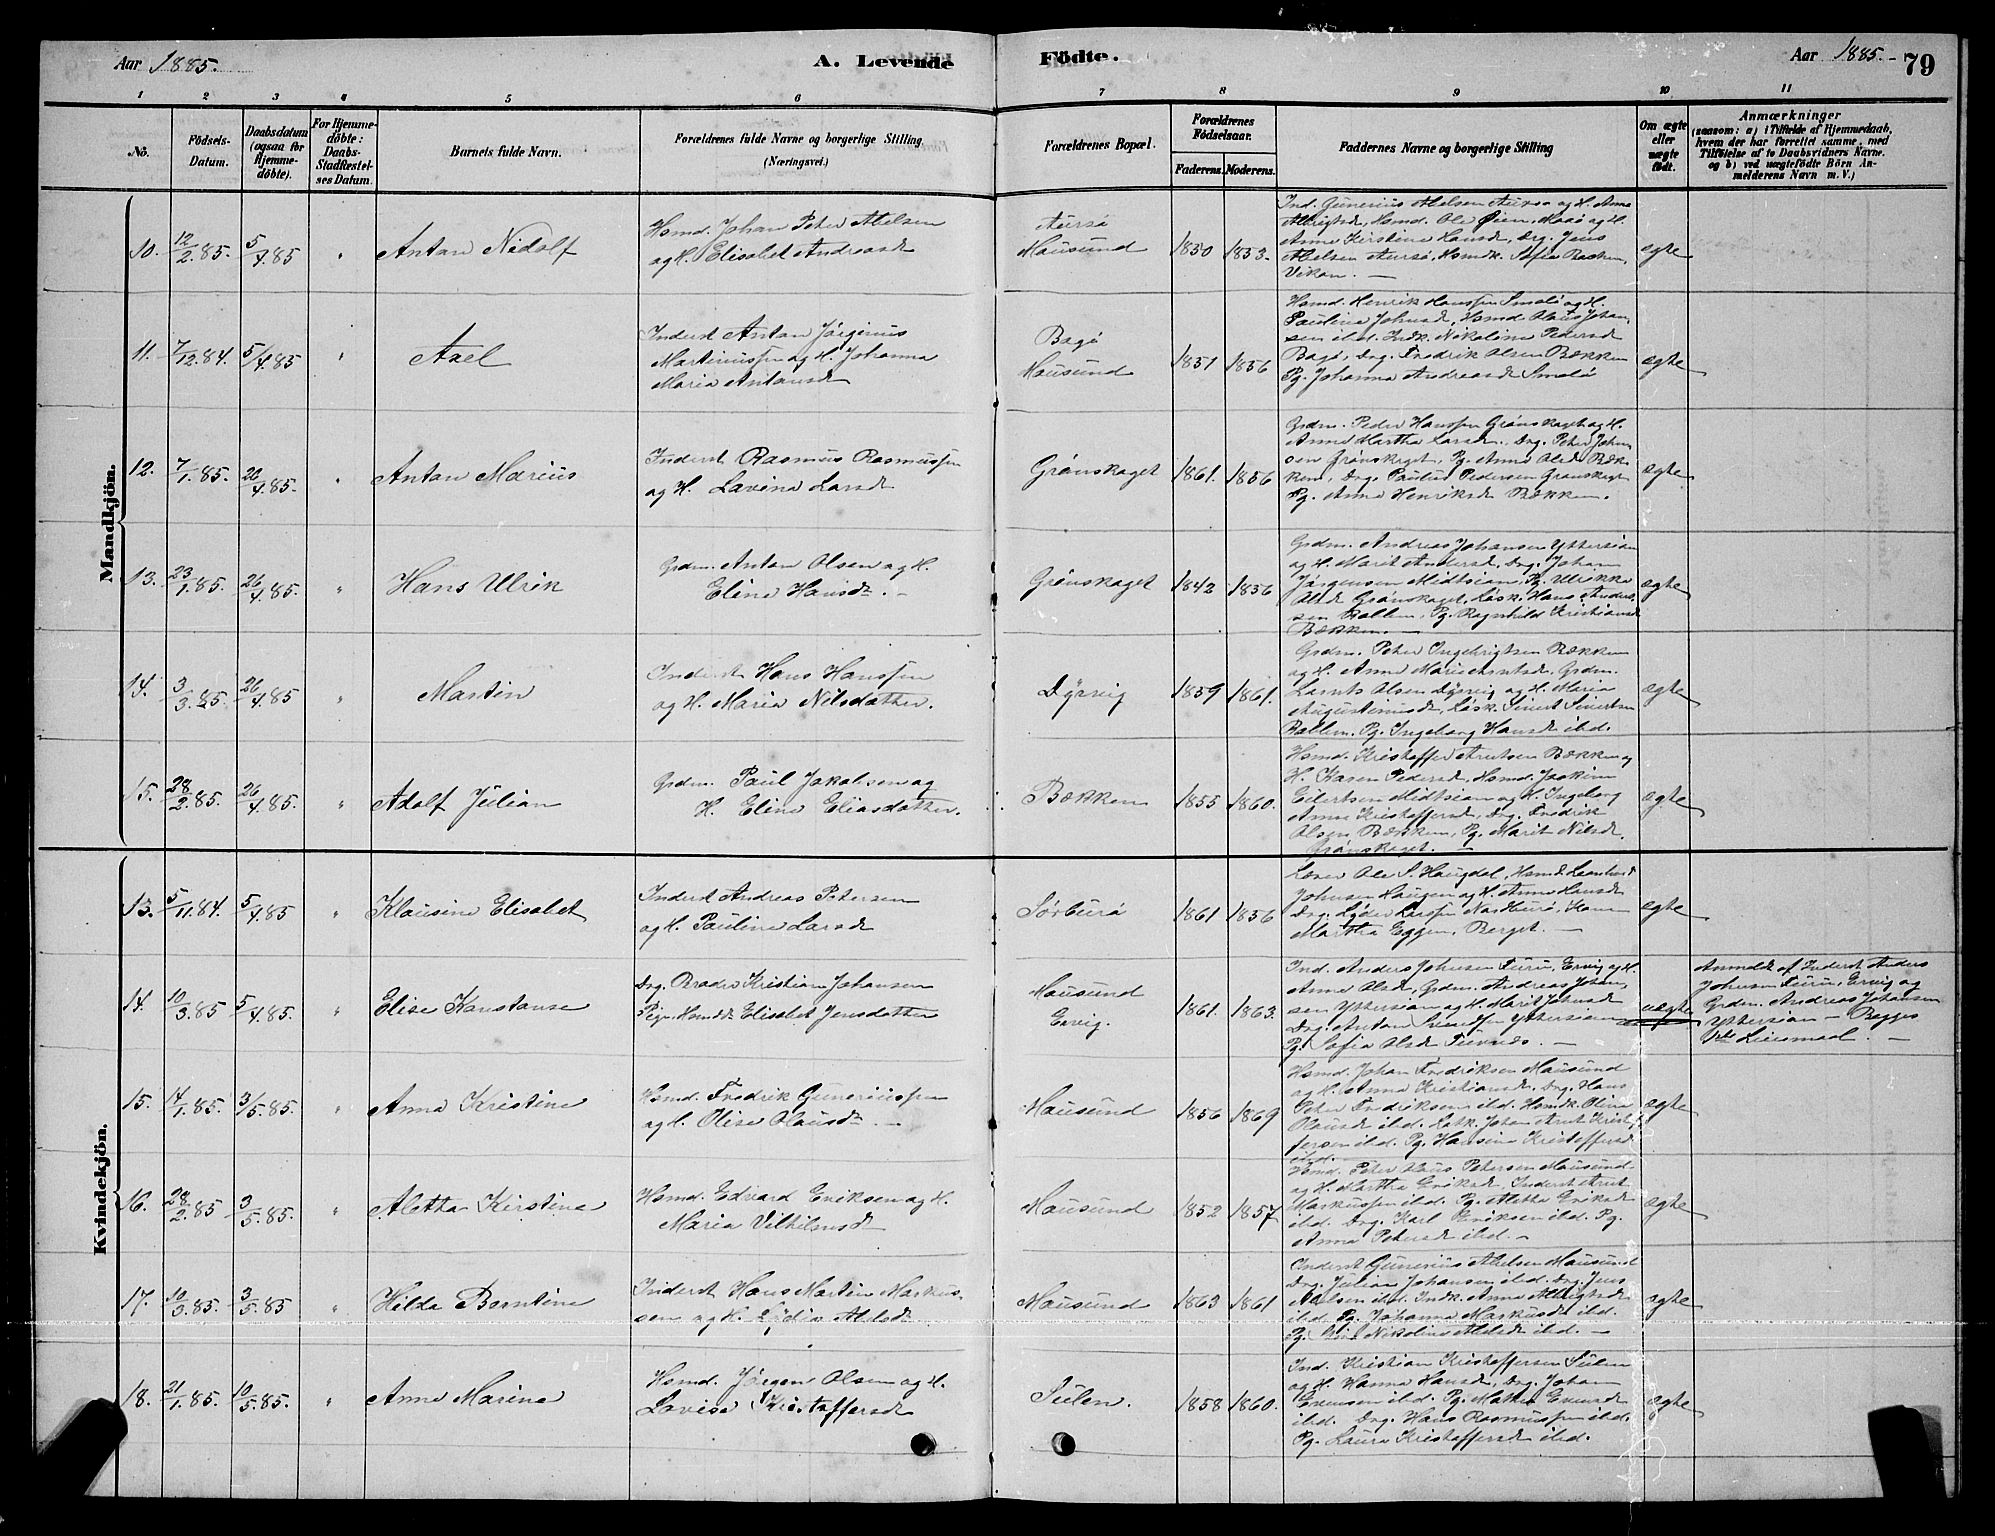 Aar 1885.
A. Levende Födte.
Aar 1885.
79
1 2 3 4 5 6 7 8 9 10 11
No.
Födsels-Datum.
Daabsdatum (ogsaa for Hjemme-döbte).
For Hjemme-döbte: Daabs-Stadfæstel-ses Datum.
Barnets fulde Navn.
Forældrenes fulde Navne og borgerlige Stilling (Næringsvei.)
Forældrenes Bopæl.
Forældrenes Födselsaar.
Faderens. Moderens.
Faddernes Navne og borgerlige Stilling
Om ægte eller uægte födt.
Anmærkninger
(saasom: a) i Tilfælde af Hjemmedaab,
hvem der har forrettet samme, med
Tilföielse af to Daabsvidners Navne.
og b) ved uægtefödte Börn An-
melderens Navn m. V.)
Mandkjön.
10. 12/2.85. 5/4.85 " Anton Nidolf
Hsmd. Johan Peter Abelsen
og H. Elisabet Andreasd
Mausund
1850 1853.
Anne Kirstine Hansd, Drg. Jens
Vikan. —
egte
11. 7/12.84. 5/4.85 " Axel
Inderst Anton Jörginus
Martinussen og H. Johanna
Maria Antonsd
Bogö
Mausund
1851 1856
Hsmd. Henrik Hanssen Smalö og H.
Paulina Johnsd, Hsmd Olaus Johan-
sen ibd. Indk. Nikolina Pedersd
Bogö, Drg. Fredrik Olsen Bækken
Pg. Johanna Andreasd Smalö
ægte
12. 7/1.85. 26/4.85. " Anton Marius
Inderst Rasmus Rasmussen
og H. Lavina Larsd
Grönskaget
1861. 1856
Grdm. Peder Hanssen Grönskaget og H.
Anne Martha Larsd., Drg. Peter Johan-
sen Grönskaget, Pg. Anna Olsd Bæk-
ken, Drg. Paulus Pedersen Grönskaget
Pg. Anna Henriksd Bækken.
ægte
13. 23/1.85. 26/4.85. " Hans Ulrik
Grdm. Anton Olsen og H.
Eline Hansd. —
Grönskaget
1842 1856
Grdm. Andreas Johansen Yttersian
og H. Marit Andersd, Drg. Johan
Jörgensen Midtsian, Pg. Ulrikke
Olsd Grönskaget, Løsk. Hans Anders-
sen Rallen, Pg. Ragnhild Kristiansd
Bækken. —
ægte
14. 3/3.85. 26/4.85 " Martin
Inderst Hans Hanssen
og H. Maria Nilsdatter.
Dyrvig
1859 1861.
Grdm. Peter Ingebrigtsen Bækken
og H. Anne Marie Arntsd. Grdm.
Lornts Olsen Dyrvig og H. Maria
Augustinusd, Løsk. Sivert Sivertsen
Rallen. Pg. Ingeborg Hansd ibd.
ægte
15. 28/2.85. 26/4.85. " Adolf Julian
Grdm. Paul Jakobsen og
H. Eline Eliasdatter.
Bækken
1855 1860.
Hsmd. Kristoffer Arntsen Bækken og
H. Karen Pedersd, Hsmd. Joakim
Eilertsen Midtsian og H. Ingeborg
Anna Kristoffersd, Drg. Fredrik
Olsen Bækken, Pg. Marit Nilsd,
Grönskaget. —
ægte
Kvindekjön.
13. 5/11.84. 5/4.85 " Klausine Elisabet
Inderst Andreas Petersen
og H. Pauline Larsd
Sörburö
1861 1856
Lærer Ole S. Haugdal, Hsmd Leonhard
Johnsen Haugen og H. Anne Hansd
Drg. Lyder Larssen Nordburö,
Martha Eggen, Berget. —
egte
14. 10/3.85 5/4.85. " Elise Konstanse
Drg. Broder Kristian Johansen
Pige, Hsmdd. Elisabet Jensdatter
Mausund
Ervig.
1861. 1863.
Ind. Anders Johnsen Furu, Ervig og H.
Anne Olsd, Grdm. Andreas Johan-
sen Yttersian og H. Marit Johnsd
Drg. Anton Svendsen Yttersian
Pg. Sofia Olsd Tuvnes. —
uægte
Anmeldt af Inderst Anders
Johnsen Furu, Ervig og
Grdm. Andreas Johansen
Yttersian — Begges
1ste Leiermaal. —
15. 14/1.85. 3/5.85. " Anna Kristine
Hsmd. Fredrik Gunerius­sen
og H. Olise Olausd. —
Mausund
1856 1869
Hsmd. Johan Fredriksen Mausund
og H. Anna Kristiansd, Drg. Hans
Peter Fredriksen ibd. Hsmdk. Olina
Olausd ibd. Løsk. Johan Arnt Kristof-
fersen ibd. Pg. Hansina Kristoffersd
ibd. —
ægte
16. 28/2.85 3/5.85. " Aletha Kirstine
Hsmd. Edvard Eriksen og H.
Maria Vilhelmsd
Mausund
1852 1857
Hsmd. Peter Olaus Petersen Mausund
og H. Martha Eriksd, Inderst Arnt
Markussen ibd. Pg. Aletha Eriksd
ibd. Drg. Karl Eriksen ibd. Pg.
Anna Petersd ibd. —
ægte
17. 10/3.85. 3/5.85 " Hilda Berntine
Inderst Hans Martin Markus-
sen og H. Lydia Abelsd
Mausund
1863 1861
Inderst Gunerius Abelsen Mausund
Drg. Julian Johansen ibd. Drg. Jens
Abelsen ibd. Indk. Anna Albrigtsd
ibd. Pg. Johanna Markusd ibd.
Pg. Nikoline Abelsd ibd. —
ægte
18. 21/1.85. 10/5.85. " Anne Marine
Hsmd. Jörgen Olsen og H.
Lavise Kristoffersd
Sulen.
1858 1860.
Ind. Kristian Kristoffersen Sulen
og H. Hanna Hansd, Drg. Johan
Evensen ibd. Pg. Mathea Evensd
ibd. Drg. Hans Rasmussen ibd.
Pg. Laura Kristoffersd ibd.
ægte